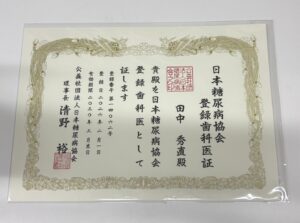 日本糖尿病協会
登録歯科医証
田中 秀直殿
貴殿を日本糖尿病協会
登録歯科医として
証します
公益社団法人日本糖尿病協会
理事長 清野 裕